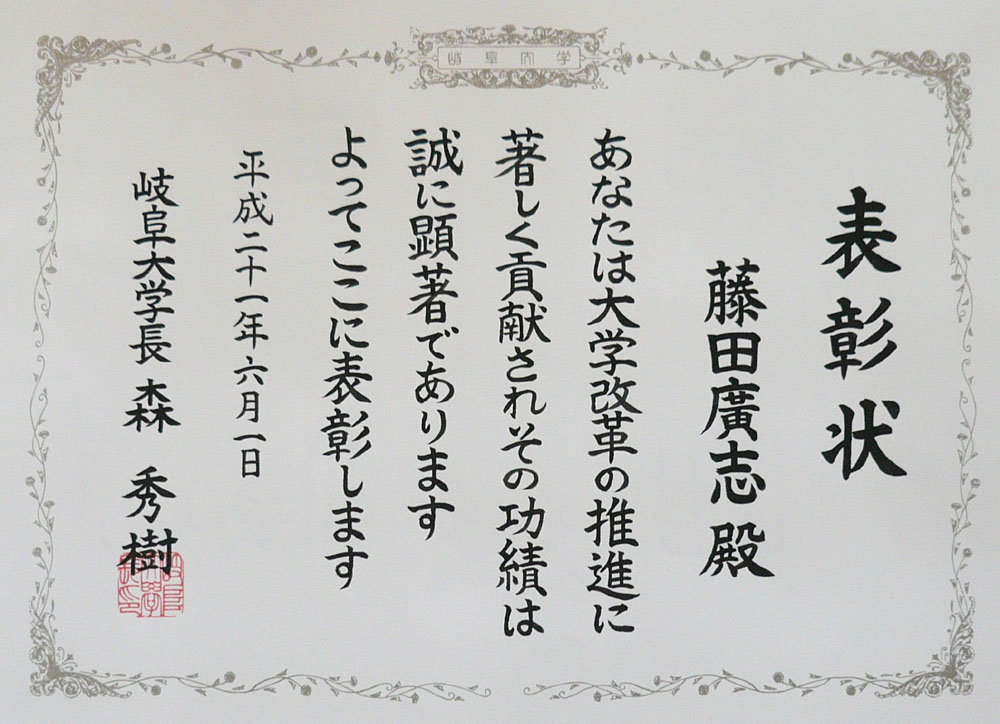 岐阜大学
表彰状
藤田廣志殿
あなたは大学改革の推進に
著しく貢献されその功績は
誠に顕著であります
よってここに表彰します
平成二十一年六月一日
岐阜大学長 森 秀樹